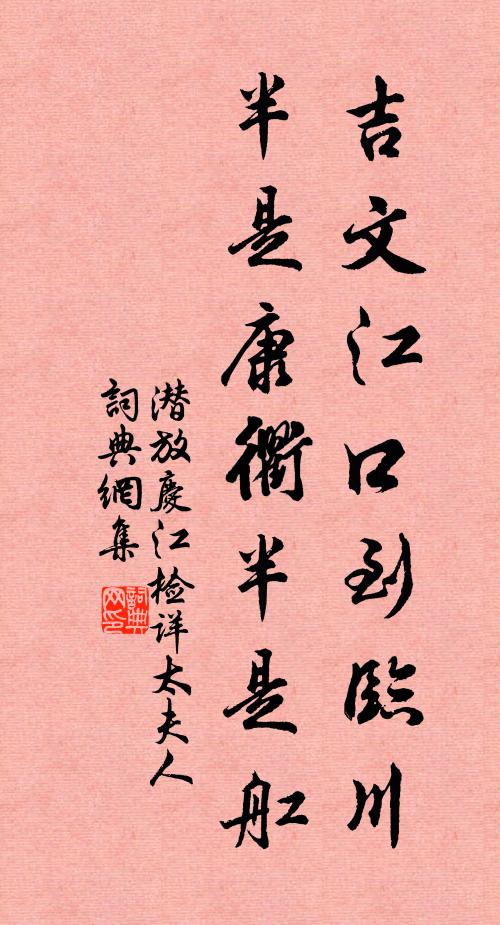 吉文江口到臨川
半是康衢半是舡
潜放慶江检详太夫人
詞典網集
詞典网印